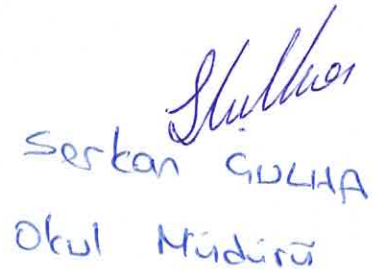 Serkan GULHA
Okul Müdürü